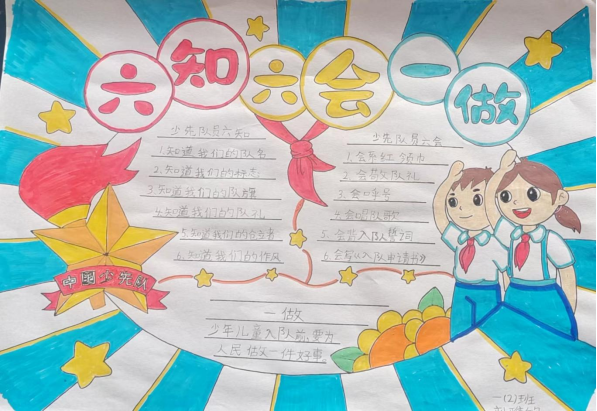 六知六会一做
少先队员六知
1.知道我们的队名
2.知道我们的标志
3.知道我们的队旗
4.知道我们的队礼
5.知道我们的
6.知道我们的作风
少先队员六会
1.会系红领巾
2.会敬队礼
3.会呼号
4.会唱队歌
5.会背入队
6.会写《入队申请书》
中国少先队
一做
少年儿童入队前要为
人民做一件好事
一(2)班